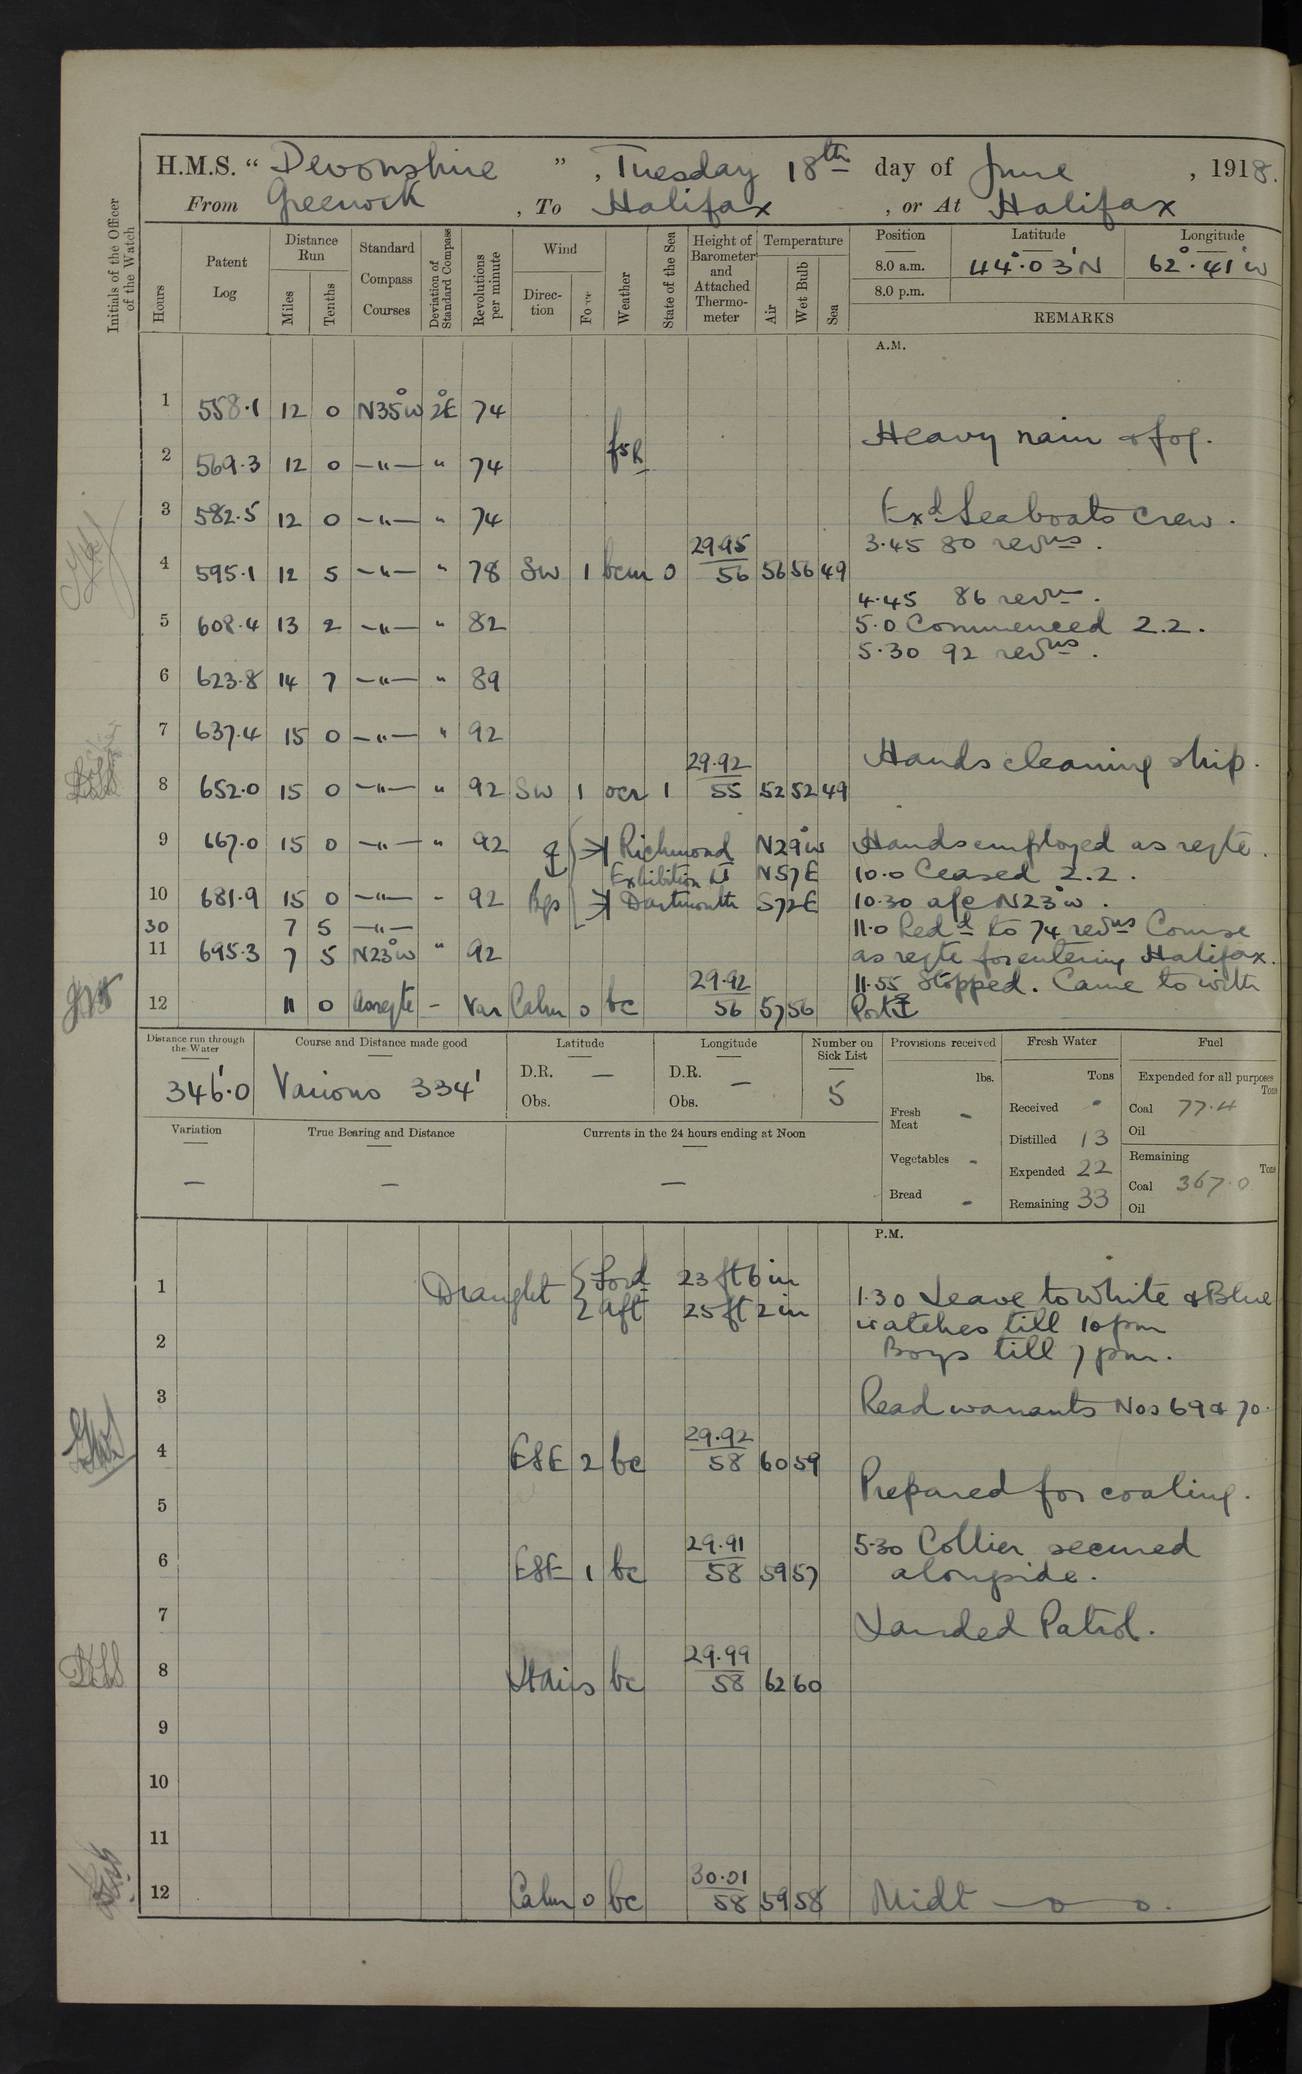 H.M.S. " Devonshire ", Tuesday 18th day of June, 1918.
From Greenock, To Halifax, or At Halifax
Initials of the Officer of the Watch
Hours
Patent Log
Distance Run
Miles
Tenths
Standard Compass Courses
Deviation of Standard Compass
Revolutions per minute
Wind
Direc-tion
Force
Weather
State of the Sea
Height of Barometer and Attached Thermo-meter
Temperature
Air
Wet Bulb
Sea
Position Latitude Longitude
8.0 a.m. 44°.03'N 62°.41'W
8.0 p.m.
REMARKS
A.M.
1 558.1 12 0 N35°W 2°E 74
Heavy rain & fog.
2 569.3 12 0 —"— " 74
3 582.5 12 0 —"— " 74
Exd Seaboats crew.
3.45 80 revns.
4 595.1 12 5 —"— " 78 SW 1 bcm 0 29.95 56 56 56 49
4.45 86 revns.
5 608.4 13 2 —"— " 82
5.0 Commenced Z.Z.
5.30 92 revns.
6 623.8 14 7 —"— " 89
7 637.4 15 0 —"— " 92
Hands cleaning ship.
8 652.0 15 0 —"— " 92 SW 1 ocr 1 29.92 55 52 52 49
9 667.0 15 0 —"— " 92 Richmond N29°W Hands employed as reqte.
Exhibition N57E 10.0 Ceased Z.Z.
10 681.9 15 0 —"— " 92 Bgs Dartmouth S72E 10.30 a/c N23°W.
30 7 5 —"—
11.0 Redd to 74 revns Course
11 695.3 7 5 N23°W " 92
as reqte for entering Halifax.
11.55 Stopped. Came to with
12 11 0 As reqte – Var Calm 0 bc 29.92 56 57 56 Port
Distance run through the Water
346'.0
Course and Distance made good
Various 334'
Latitude
D.R. —
Obs.
Longitude
D.R. —
Obs.
Number on Sick List
5
Provisions received
lbs.
Fresh Meat -
Vegetables -
Bread -
Fresh Water
Tons
Received -
Distilled 13
Expended 22
Remaining 33
Fuel
Expended for all purposes
Tons
Coal 77.4
Oil
Remaining
Tons
Coal 367.0
Oil
Variation
—
True Bearing and Distance
—
Currents in the 24 hours ending at Noon
—
P.M.
1 Draught Ford 23 ft 6 in
aft 25 ft 2 in
1.30 Leave to White & Blue
watches till 10 pm
2
Boys till 7 pm.
3
Read warrants Nos 69 & 70.
4 ESE 2 bc 29.92 58 60 59
Prepared for coaling.
5
5.30 Collier secured
6 ESE 1 bc 29.91 58 59 57
alongside.
7
Landed Patrol.
8 bc 29.99 58 62 60
9
10
11
12 Calm 0 bc 30.01 58 59 58 Midt —o—o.